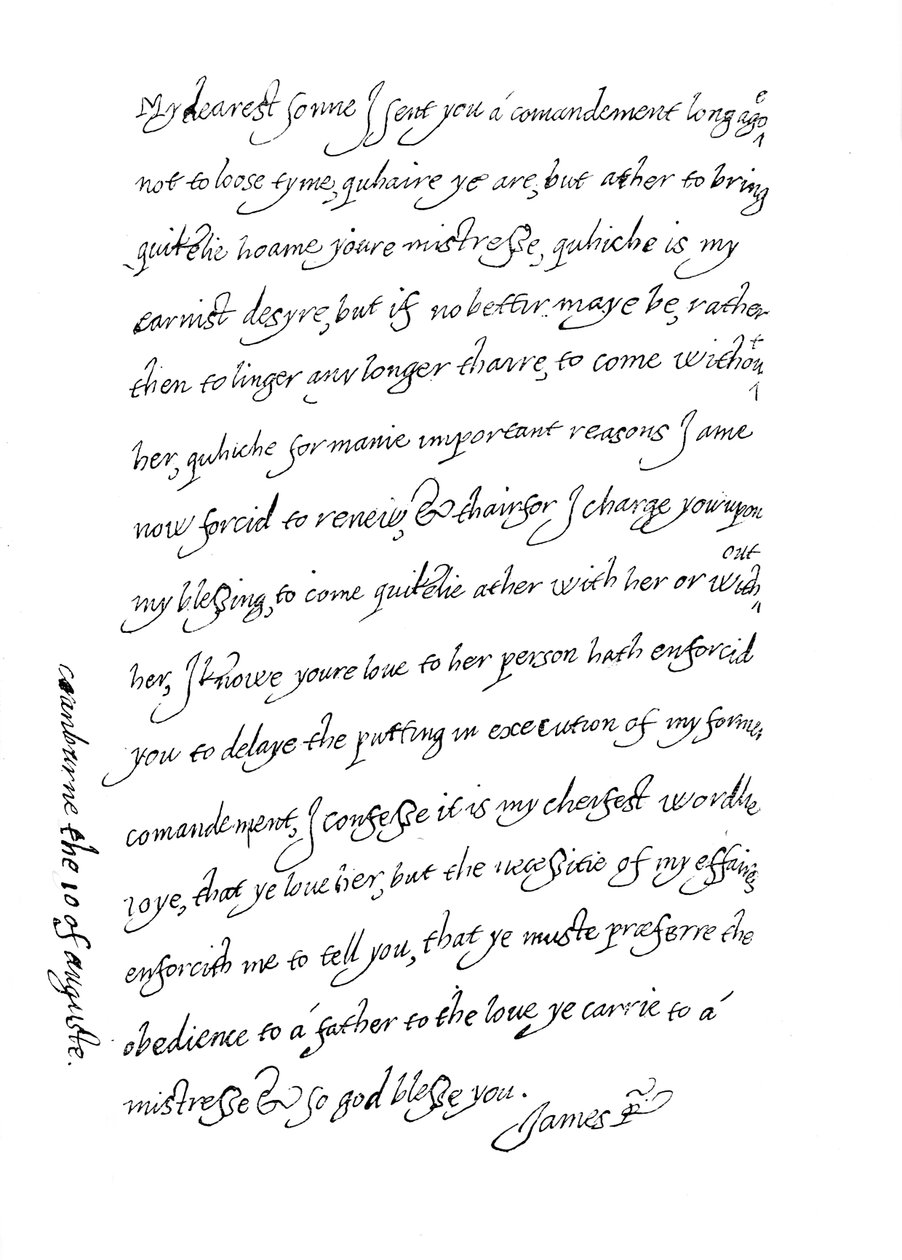 My dearest sonne I sent you á comandement long agoe
not to loose tyme, quhaire ye are, but ather to bring
quikelie hoame youre mistresse, quhiche is my
earnist desyre, but if no bettir maye be, rather
then to linger any longer thaire, to come without
her, quhiche for manie important reasons I ame
now forcid to renew, & thairfor I charge you upon
my blessing, to come quikelie ather with her or without
her, I knowe youre love to her person hath enforcid
you to delaye the putting in execution of my former
comandement, I confesse it is my cheifest wordlie
joye, that ye love her, but the necessitie of my effaires
enforcith me to tell you, that ye muste præferre the
obedience to á father to the love ye carrie to á
mistresse & so god blesse you.
James R
cranburne the 10 of auguste.